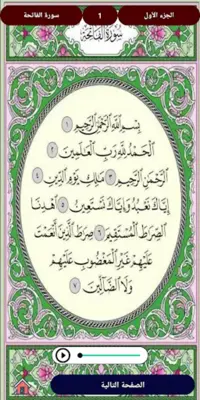 سورة الفاتحة 1 الجزء الأول
سورة الفاتحة
بِسْمِ اللَّهِ الرَّحْمَٰنِ الرَّحِيمِ ١
الْحَمْدُ لِلَّهِ رَبِّ الْعَالَمِينَ ٢
الرَّحْمَٰنِ الرَّحِيمِ ٣ مَالِكِ يَوْمِ الدِّينِ ٤
إِيَّاكَ نَعْبُدُ وَإِيَّاكَ نَسْتَعِينُ ٥ اهْدِنَا
الصِّرَاطَ الْمُسْتَقِيمَ ٦ صِرَاطَ الَّذِينَ أَنْعَمْتَ
عَلَيْهِمْ غَيْرِ الْمَغْضُوبِ عَلَيْهِمْ
وَلَا الضَّالِّينَ ٧
الصفحة التالية